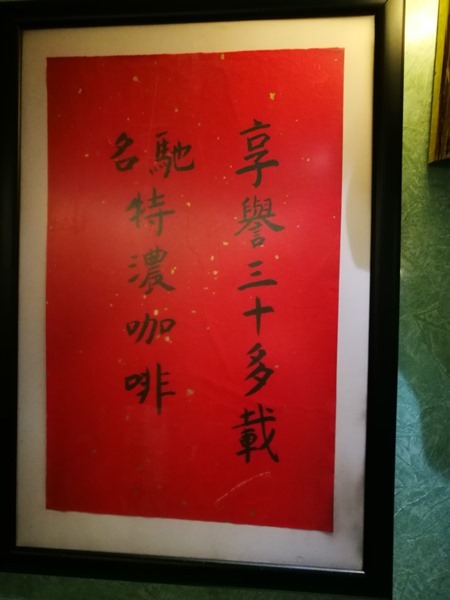 享譽三十多載
馳名
特濃咖啡